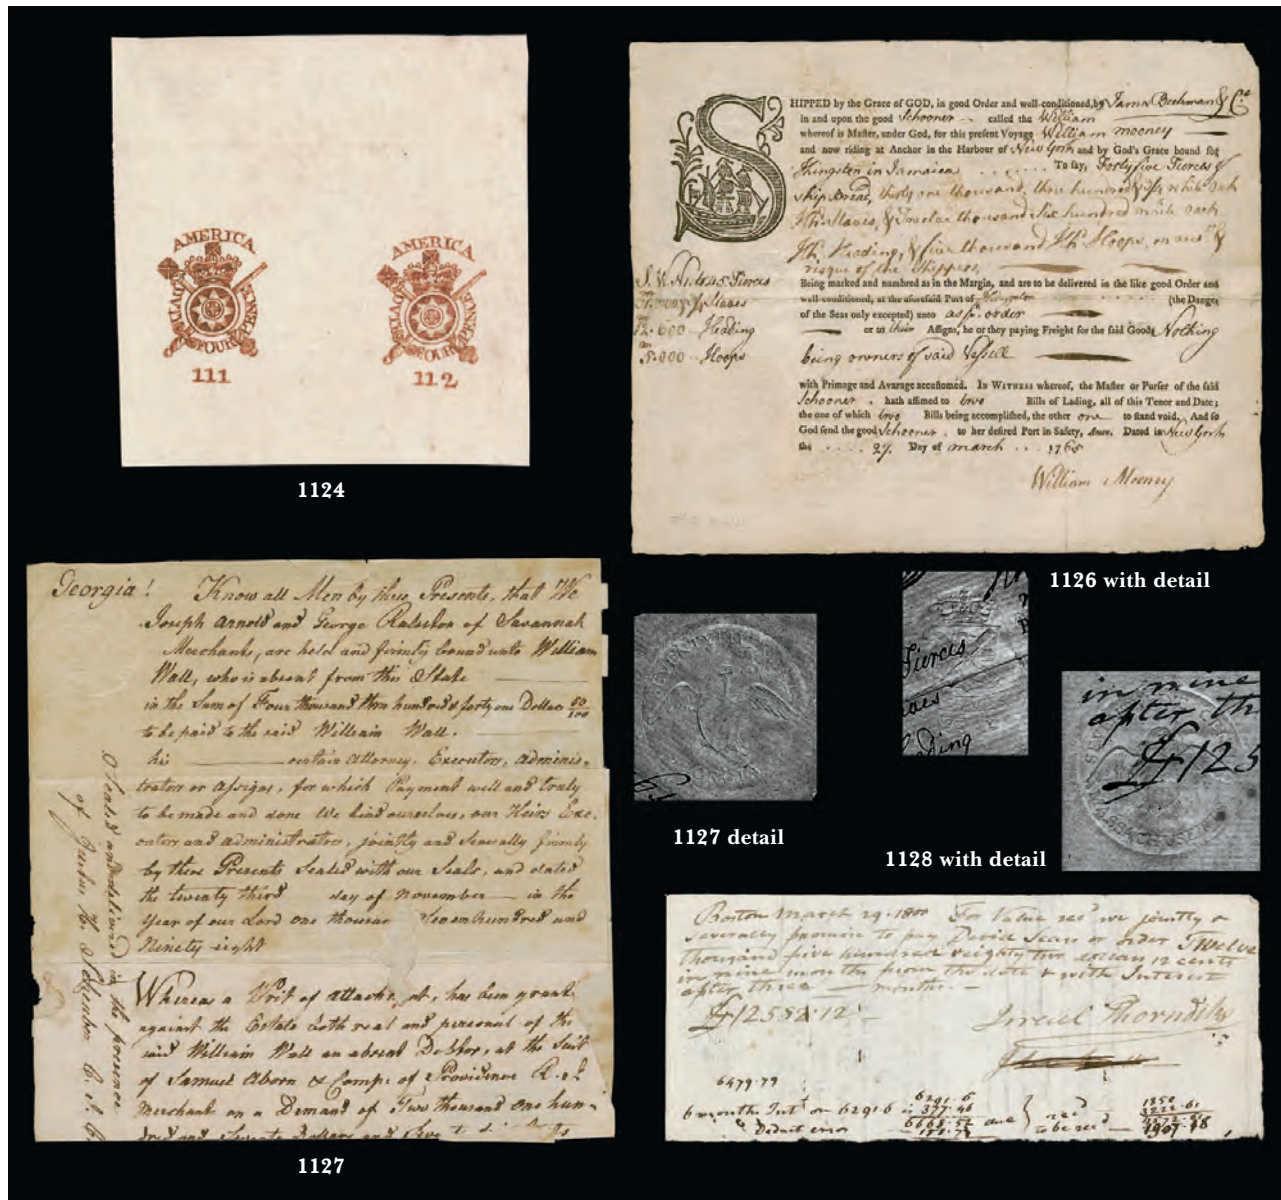 AMERICA
DUTY
FOUR
PENCE
111
AMERICA
FOUR
PENCE
112
1124
SHIPPED by the Grace of GOD, in good Order and well-conditioned, by James Beekman & Co
in and upon the good Schooner called the William
whereof is Master, under God, for this present Voyage William Mooney
and now riding at Anchor in the Harbour of New York and by God's Grace bound for
Kingston in Jamaica To say, Forty five Tierces of
Ship Bread, thirty one thousand, three hundred white Oak
Slaves, & Twelve thousand Six hundred white Oak
Heading, & five thousand Hoops, &
risque of the Shippers
45 Tierces
Staves
12.600 Heading
5.000 Hoops
Being marked and numbred as in the Margin, and are to be delivered in the like good Order and
well-conditioned, at the aforesaid Port of Kingston (the Danger
of the Seas only excepted) unto order
or to their Assigns, he or they paying Freight for the said Goods Nothing
being owners of said Vessell
with Primage and Avarage accustomed. IN WITNESS whereof, the Master or Purser of the said
Schooner hath affirmed to two Bills of Lading, all of this Tenor and Date;
the one of which two Bills being accomplished, the other one to stand void. And so
God send the good Schooner to her desired Port in Safety, Amen. Dated in New York
the 27 Day of March 1765
William Mooney
1126 with detail
Georgia! Know all Men by these Presents, that We
Joseph Arnold and George Ralston of Savannah
Merchants, are held and firmly bound unto William
Wall, who is absent from this State
in the Sum of Four thousand three hundred & forty one Dollars 50/100
to be paid to the said William Wall.
his certain Attorney, Executors, adminis-
trators or assigns, for which Payment well and truly
to be made and done We bind ourselves, our Heirs Exe-
cutors and administrators, jointly and severally firmly
by these Presents Sealed with our Seals, and dated
the twenty third day of November in the
Year of our Lord one thousand Seven hundred and
Ninety eight
Whereas a Writ of attachment, has been grant
against the Estate both real and personal of the
said William Wall an absent Debtor, at the Suit
of Samuel Aborn & Comp: of Providence R. I.
Merchant on a Demand of Two thousand One hun-
dred and Seventy Dollars and
Sealed and delivered in the presence
of
1127
1127 detail
Tierces
Heading
in nine
after th
$125
MASSACHUSETTS
1128 with detail
Boston March 29. 1800 For Value recd we jointly &
severally promise to pay David Sears or order Twelve
thousand five hundred eighty two dollars 12 cents
in nine months from the date & with Interest
after three months.
$12582.12
Israel Thorndike
6479.79
6 months Intt on 6291.6 is
6291.6
377.46
6668.52 due
Deduct error
recd
to be recd
1350
3222.61
1907.18